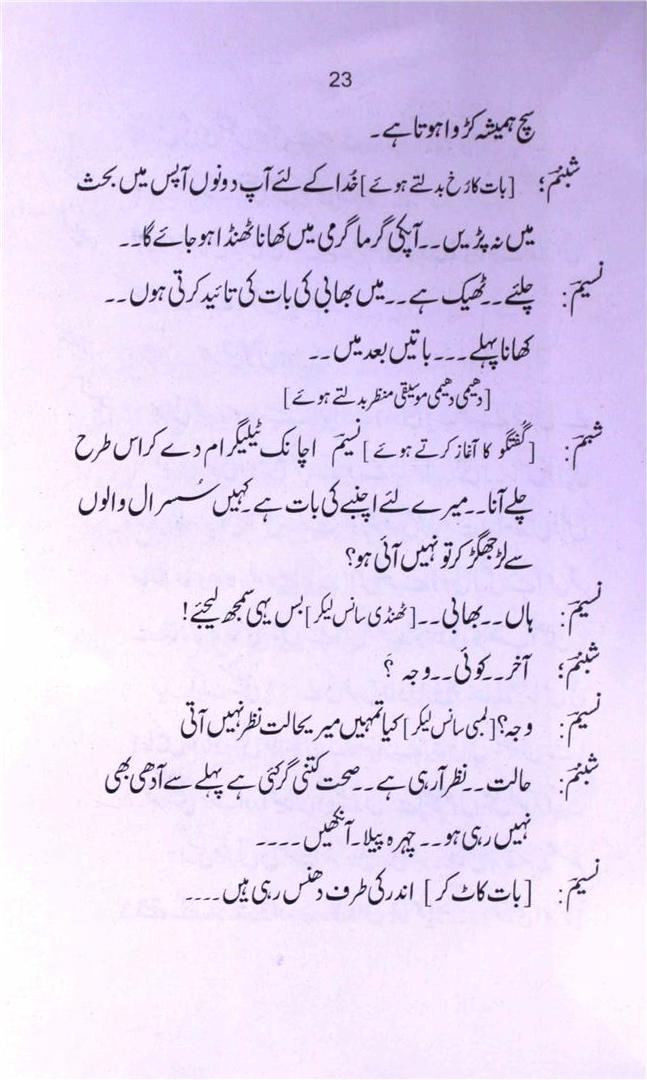 23
سچ ہمیشہ کڑوا ہوتا ہے۔
شبنم؛ [بات کا رُخ بدلتے ہوئے] خُدا کے لئے آپ دونوں آپس میں بحث
میں نہ پڑیں۔۔آپکی گرما گرمی میں کھانا ٹھنڈا ہو جائے گا۔۔
نسیم: چلئے۔۔ٹھیک ہے۔۔میں بھابی کی بات کی تائید کرتی ہوں۔۔
کھانا پہلے۔۔۔باتیں بعد میں۔۔
[دھیمی دھیمی موسیقی منظر بدلتے ہوئے]
شبنم: [گفتگو کا آغاز کرتے ہوئے] نسیم اچانک ٹیلیگرام دے کر اس طرح
چلے آنا۔۔میرے لئے اچنبے کی بات ہے۔کہیں سُسرال والوں
سے لڑ جھگڑ کر تو نہیں آئی ہو؟
نسیم: ہاں۔۔بھابی۔۔[ٹھنڈی سانس لیکر] بس یہی سمجھ لیجئے!
شبنم؛ آخر۔۔کوئی۔۔وجہ ؟
نسیم: وجہ؟ [لمبی سانس لیکر] کیا تمہیں میریحالت نظر نہیں آتی
شبنم: حالت۔۔نظر آرہی ہے۔۔صحت کتنی گر گئی ہے پہلے سے آدھی بھی
نہیں رہی ہو۔۔چہرہ پیلا۔آنکھیں۔۔۔۔
نسیم: [بات کاٹ کر] اندر کی طرف دھنس رہی ہیں۔۔۔۔